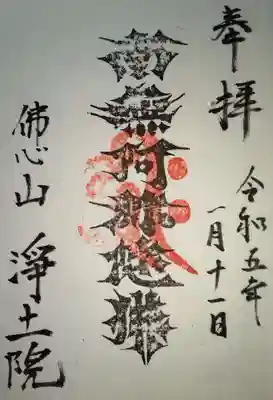 奉拝
令和五年
一月十一日
南無阿弥陀佛
佛心山
淨土院